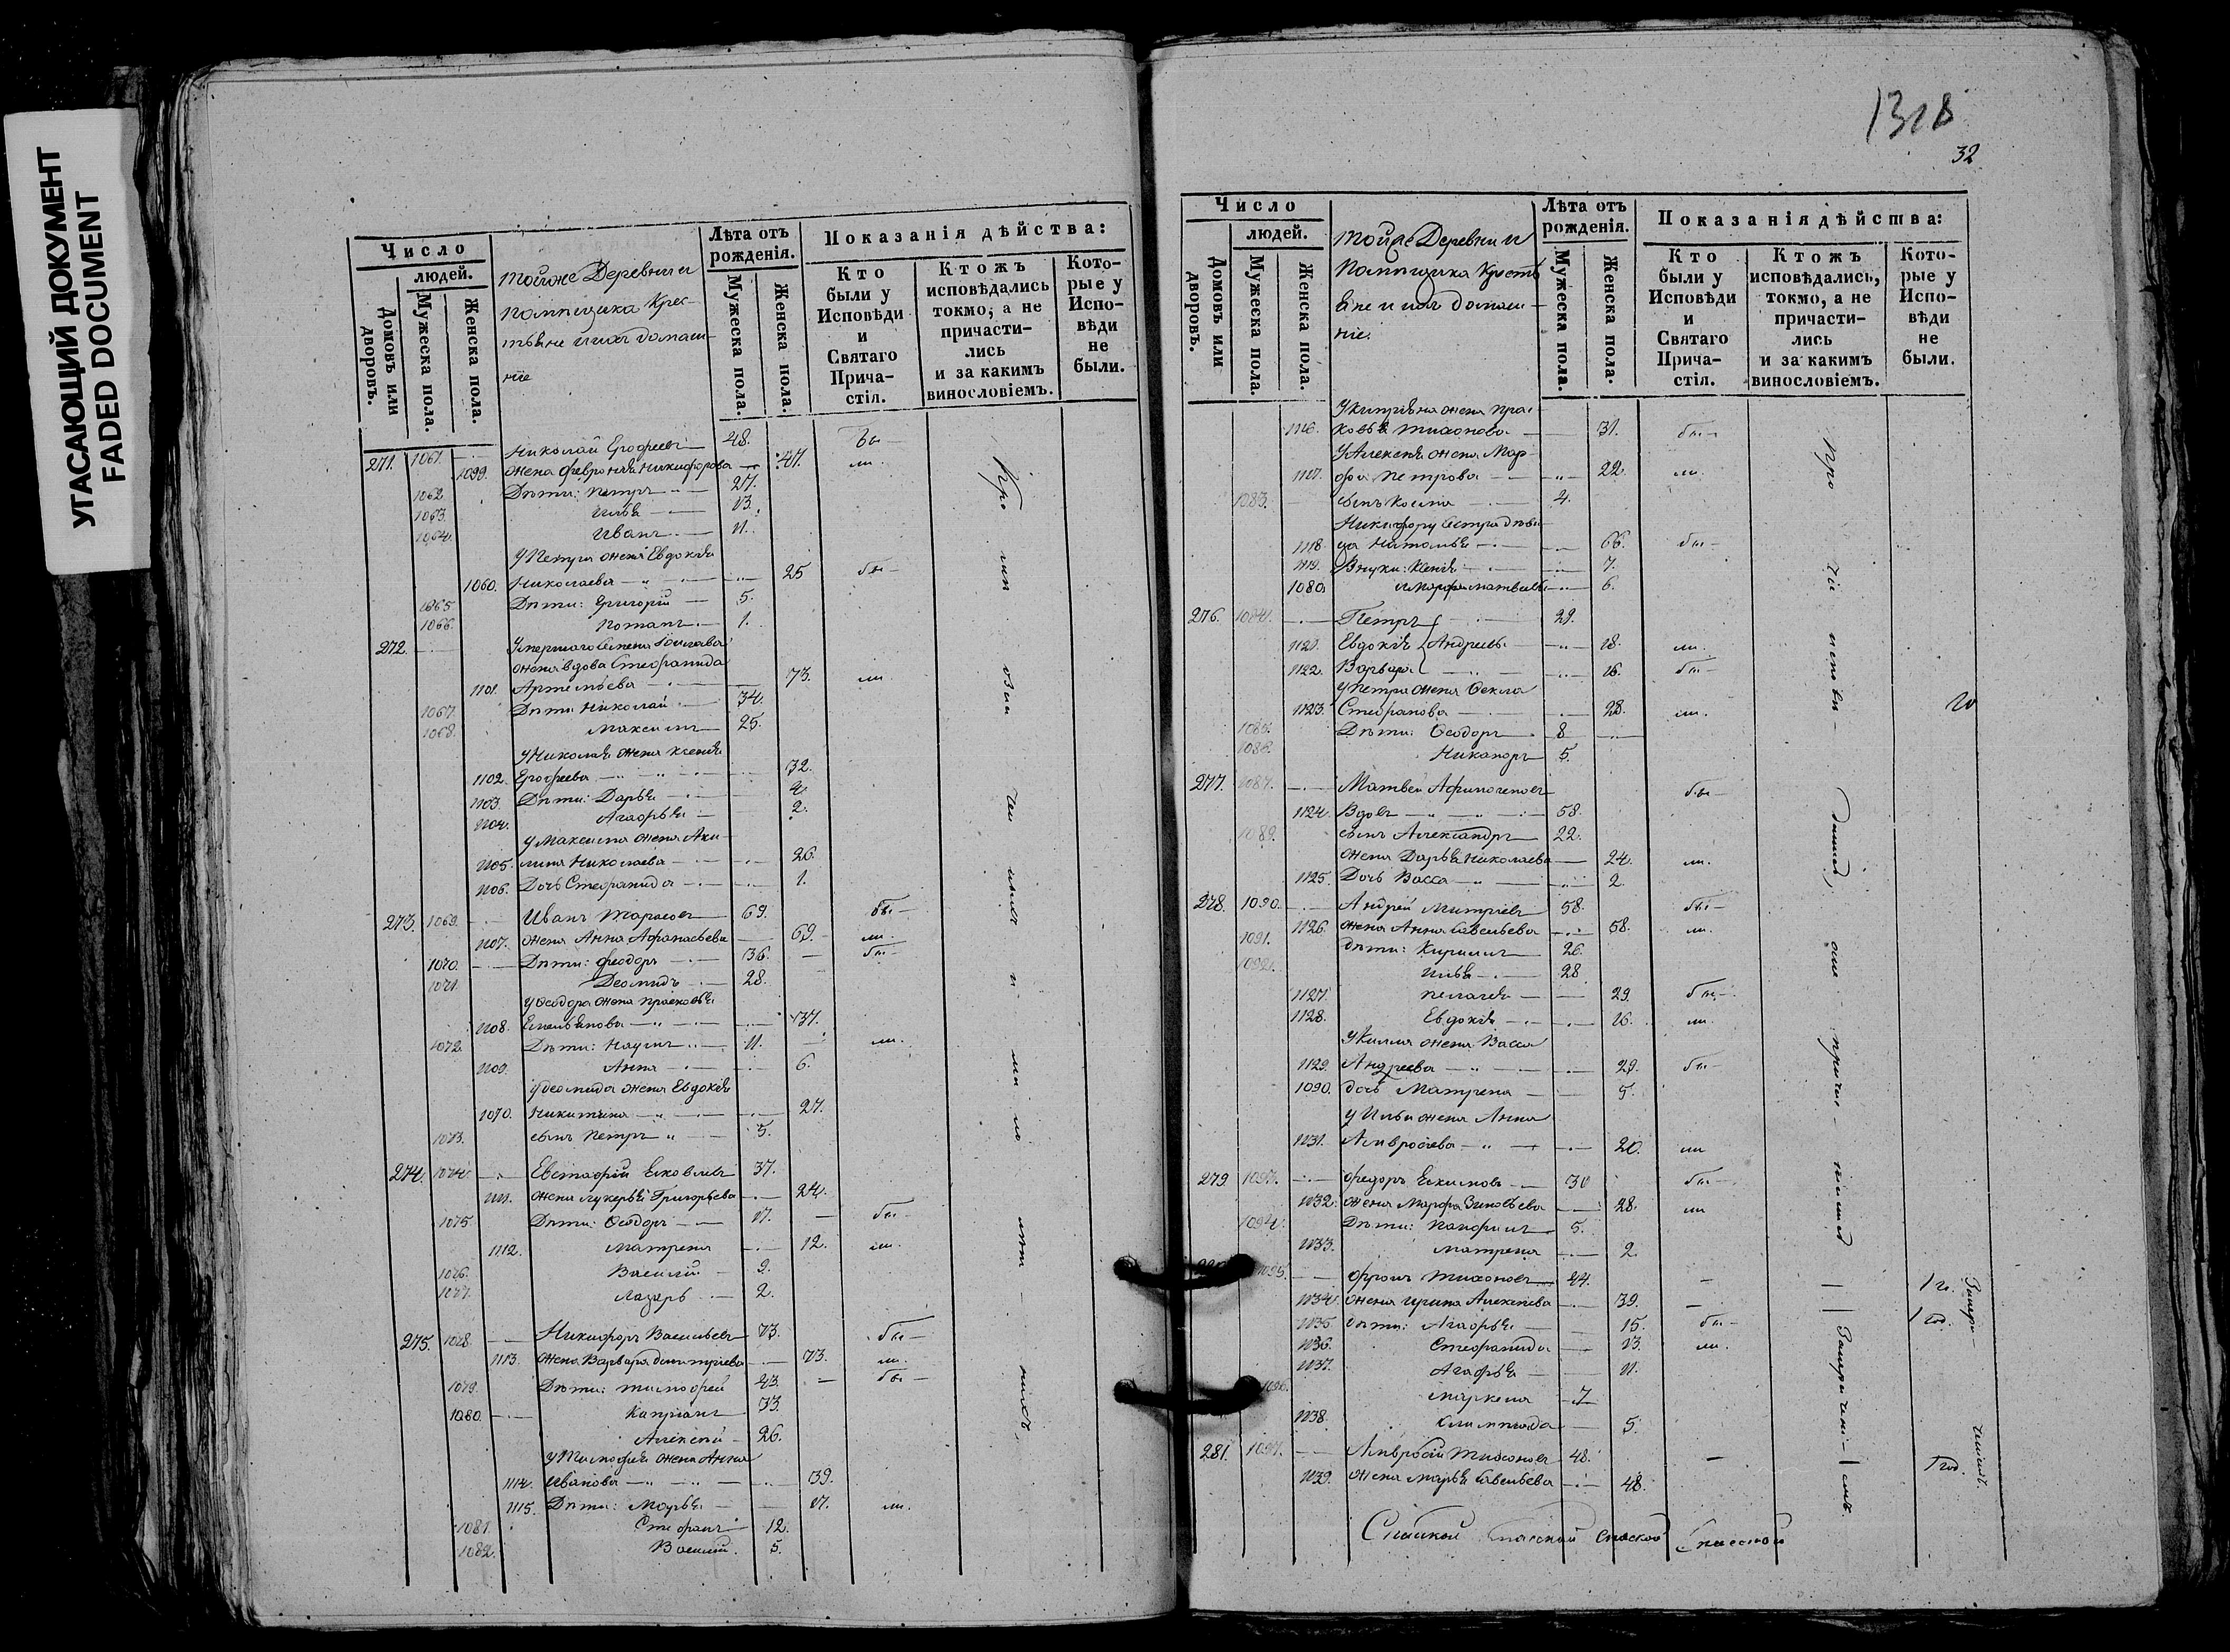 УГАСАЮЩИЙ ДОКУМЕНТ
FADED DOCUMENT
Число
людей.
Домовъ или дворовъ.
Мужеска пола.
Женска пола.
тойже Деревни и
помѣщика Крес-
тьяне и ихъ домаш-
ніе
Лѣта отъ рожденія.
Мужеска пола.
Женска пола.
Показанія дѣйства:
Кто были у Исповѣди и Святаго Прича-стія.
Ктожъ исповѣдались токмо, а не причасти-лись и за какимъ винословіемъ.
Кото-рые у Испо-вѣди не были.
271. 1061. Николай Ерофеевъ 48. бы
1099. жена Февронія Никифорова 47. ли.
1062 Дѣти: Петръ 27.
1063. Илья 13.
1064. Иванъ 11.
У Петра жена Евдокія
1060. Николаева 25 бы
1065 Дѣти: Григорій 5.
1066. Романъ 1.
272. Умершаго Семена
жена вдова Стефанида
1101. Артемьева 73. ли
1067. Дѣти: Николай 34.
1068. Максимъ 25.
У Николая жена Ксенія
1102. Ерофеева 32.
1103. Дѣти: Дарья 4
1104. Агафья 2.
У Максима жена Аки-
1105. лина Николаева 26.
1106. Дочь Стефанида 1.
273. 1069. Иванъ Тарасовъ 69. бы
1107. жена Анна Афанасьева 69. ли.
1070. Дѣти: Феодоръ 36. бы
1071. Деомидъ 28.
У Феодора жена Прасковья
1108. Емельянова 37.
1072. Дѣти: Наумъ 11. ли.
1109. Анна 6.
У Деомида жена Евдокія
1070. Никитина 27.
1073. сынъ Петръ 5.
274. 1074. Евстафій Яковлевъ 37.
1111. жена Лукерья Григорьева 24.
1075 Дѣти: Феодоръ 17. бы
1112. Матрена 12. ли.
1076. Василій 9.
1077. Лазарь 2.
275. 1078. Никифоръ Васильевъ 73. бы
1113. жена Варвара Димитріева 73. ли.
1079. Дѣти: Тимофей 43. бы
1080. Капріанъ 33.
Алексей 26.
У Тимофея жена Анна
1114. Иванова 39.
1115. Дѣти: Марья 17. ли.
1081. Стефанъ 12.
1082. Василій. 5.
1318
32
Число
людей.
Домовъ или дворовъ.
Мужеска пола.
Женска пола.
тойже Деревни и
Помѣщика Кресть
яне и ихъ домаш-
ніе.
Лѣта отъ рожденія.
Мужеска пола.
Женска пола.
Показанія дѣйства:
Кто были у Исповѣди и Святаго Прича-стія.
Ктожъ исповѣдались, токмо, а не причасти-лись и за какимъ винословіемъ.
Кото-рые у Испо-вѣди не были.
У Кипріяна жена Прас-
1116. ковья Тихонова 31. бы
У Алексея жена Мар-
1117. фа Петрова 22. ли.
1083. сынъ Косма 4.
Никифору сестра дѣви
1118. ца Наталья 66. бы
1119. Внуки: Ксенія 7.
1080. Марфа Матвеевы 6.
276. 1084. Петръ 29.
1121. Евдокія Андреевы 18. ли.
1122. Варвара 16. бы
У Петра жена Фекла
1123. Стефанова 28. ли.
1085. Дѣти: Феодоръ 8
1086. Никаноръ 5.
277. 1087. Матвей Афиногеновъ бы
1124. Вдовъ 58.
1089. сынъ Александръ 22.
жена Дарья Николаева 24. ли.
1125. Дочь Васса 2.
278. 1090. Андрей Митріевъ 58. бы
1126. жена Анна Савельева 58. ли.
1091. Дѣти: Кирилъ 26.
1092. Илья 28
1127. Пелагея 29. бы
1128. Евдокія 16. ли.
жена Васса
1129. Андреева 29. бы
1090. дочь Матрена 5.
У Ильи жена Анна
1131. Амвросіева 20. ли
279. 1093. Федоръ Екимовъ 30 бы
1132. жена Марфа Зиновьева 28. ли
1094. Дѣти: Панфилъ 5.
1133. Матрена 2.
1095. Фролъ Тихоновъ 44.
1134. жена Ирина Алексеева 39.
1135 Дѣти: Агафья 15. бы
1136. Стефанида 13. ли.
1137. Агафья 11.
1096. Маркелъ 7
1138. Олимпіада 5.
281. 1097. Амвросій Тихоновъ 48. 1 год.
1139. жена Марья Савельева 48.
Спаской